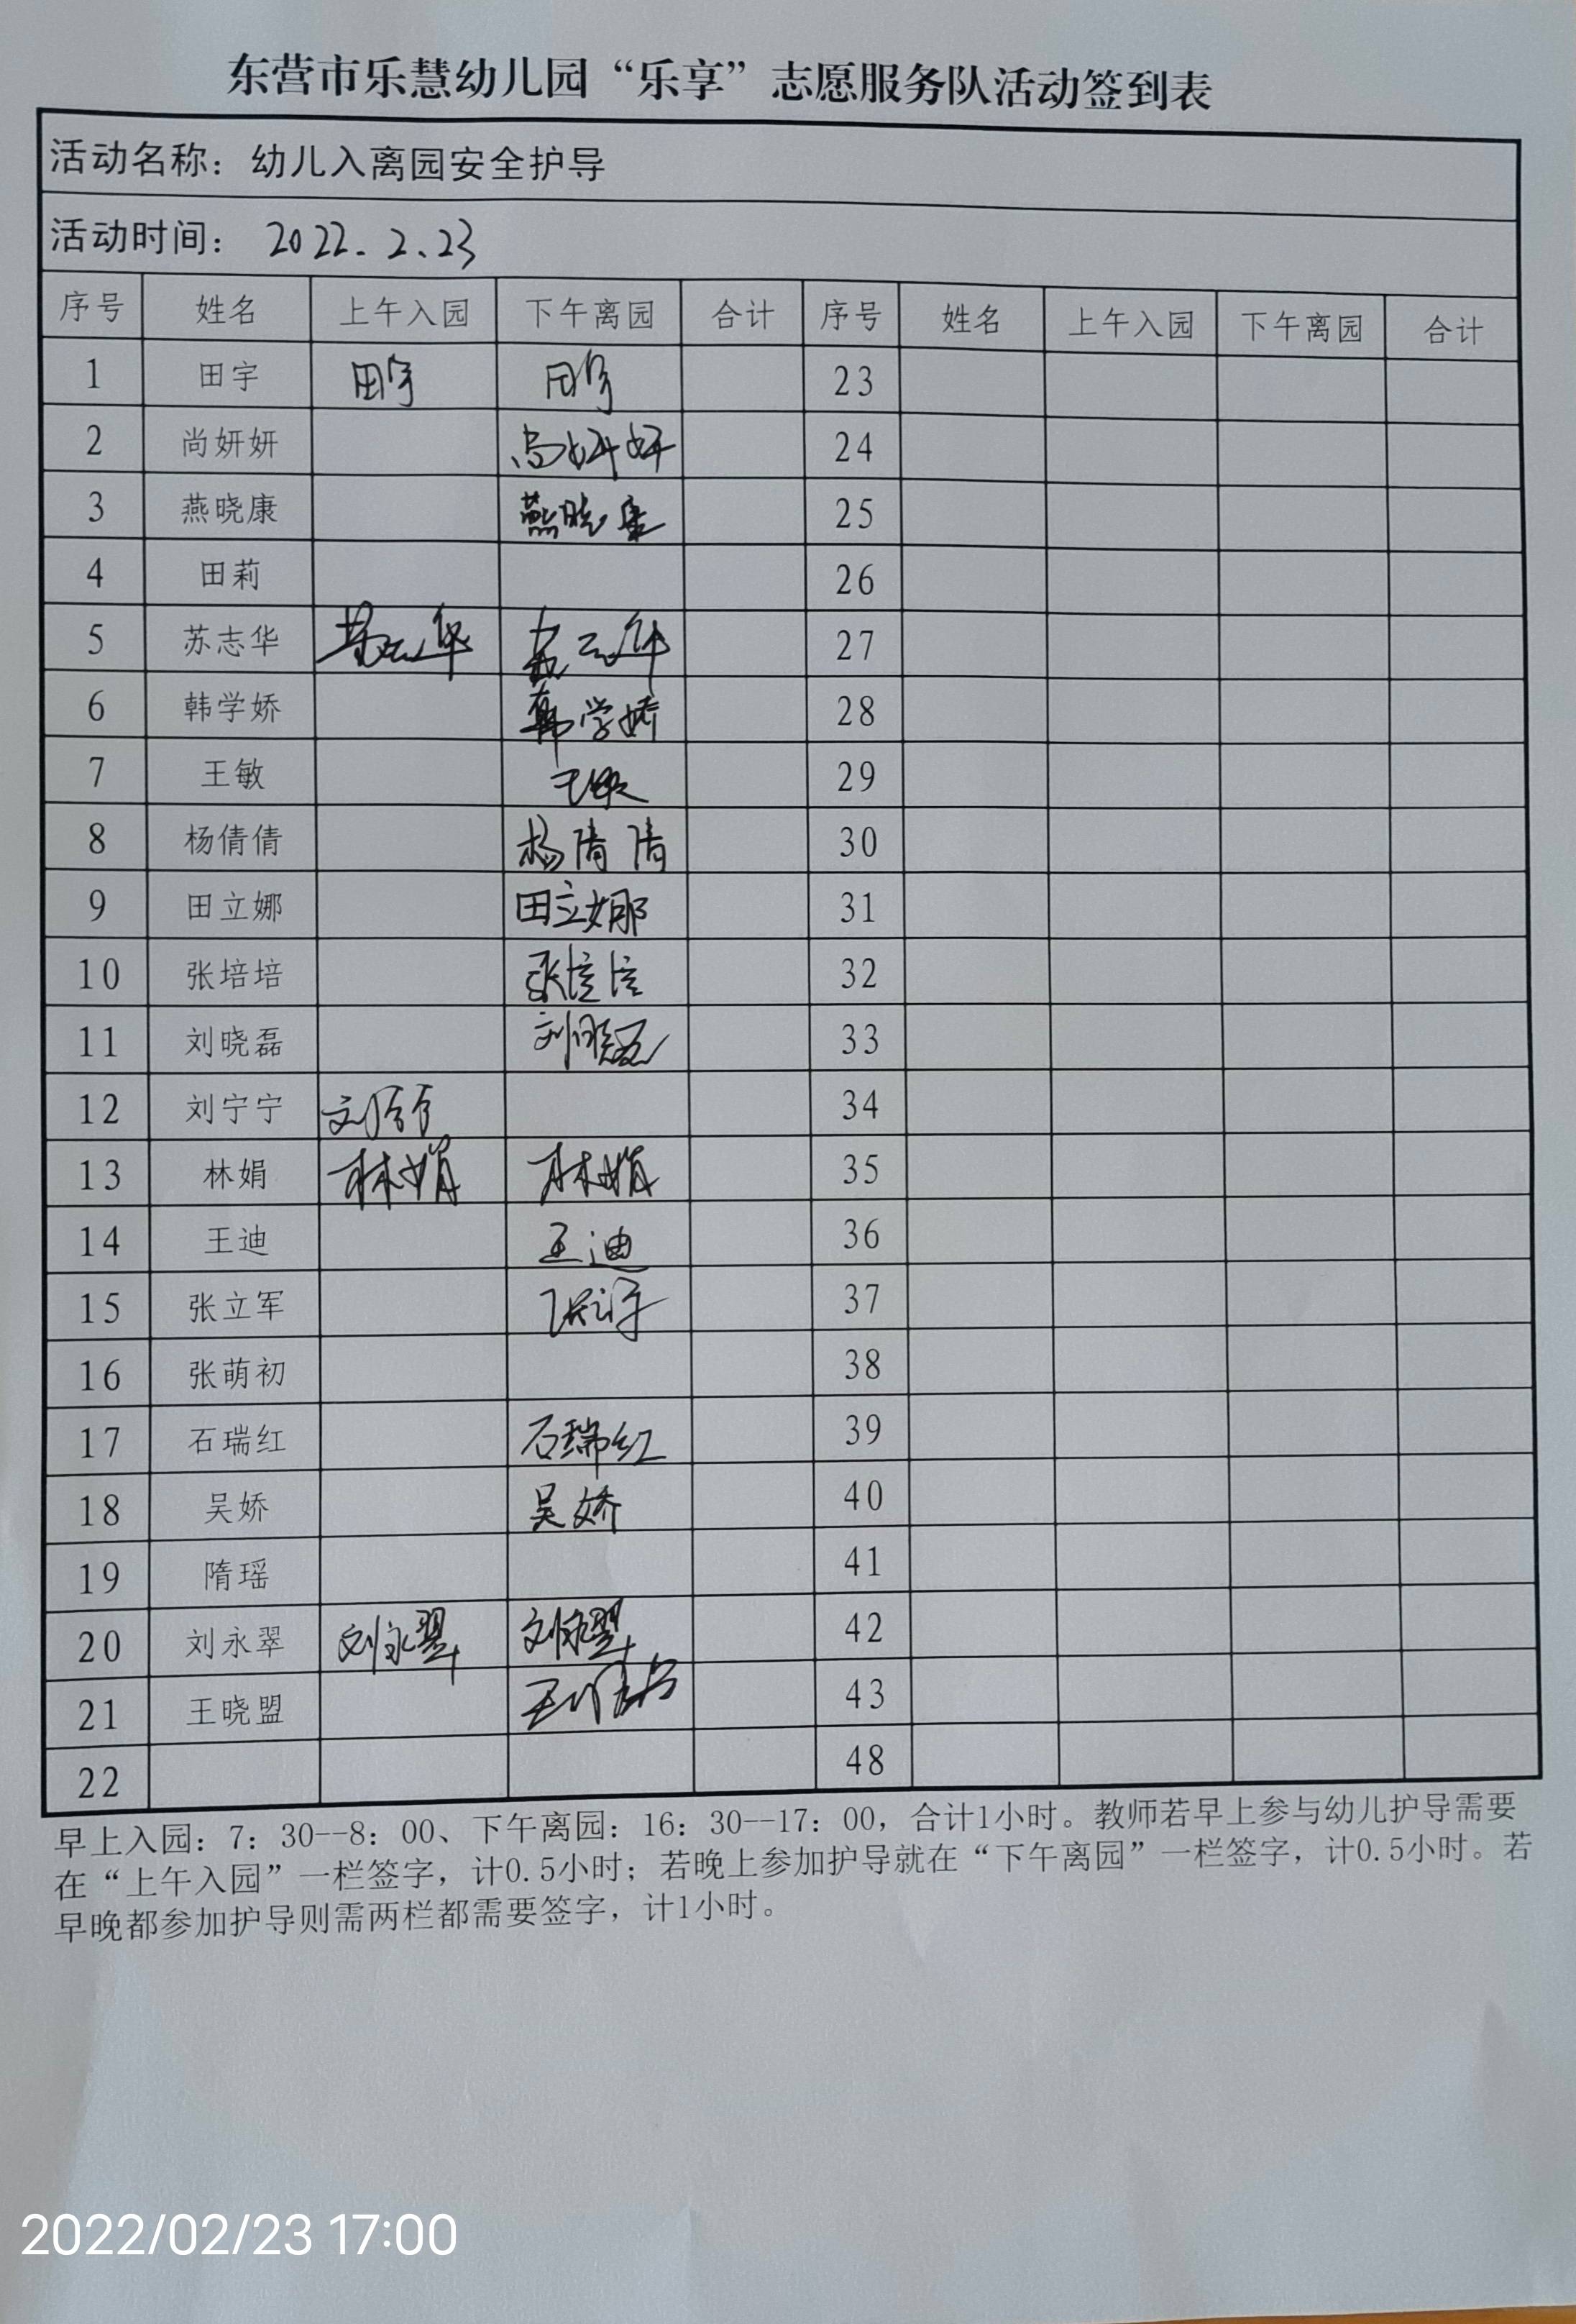 东营市乐慧幼儿园“乐享”志愿服务队活动签到表
活动名称：幼儿入离园安全护导
活动时间： 2022.2.23
序号 姓名 上午入园 下午离园 合计 序号 姓名 上午入园 下午离园 合计
1 田宇 田宇 田宇 23
2 尚妍妍 尚妍妍 24
3 燕晓康 燕晓康 25
4 田莉 26
5 苏志华 苏志华 苏志华 27
6 韩学娇 韩学娇 28
7 王敏 王敏 29
8 杨倩倩 杨倩倩 30
9 田立娜 田立娜 31
10 张培培 张培培 32
11 刘晓磊 刘晓磊 33
12 刘宁宁 刘宁宁 34
13 林娟 林娟 林娟 35
14 王迪 王迪 36
15 张立军 张立军 37
16 张萌初 38
17 石瑞红 石瑞红 39
18 吴娇 吴娇 40
19 隋瑶 41
20 刘永翠 刘永翠 刘永翠 42
21 王晓盟 43
22 48
早上入园：7：30--8：00、下午离园：16：30--17：00，合计1小时。教师若早上参与幼儿护导需要
在“上午入园”一栏签字，计0.5小时；若晚上参加护导就在“下午离园”一栏签字，计0.5小时。若
早晚都参加护导则需两栏都需要签字，计1小时。
2022/02/23 17:00